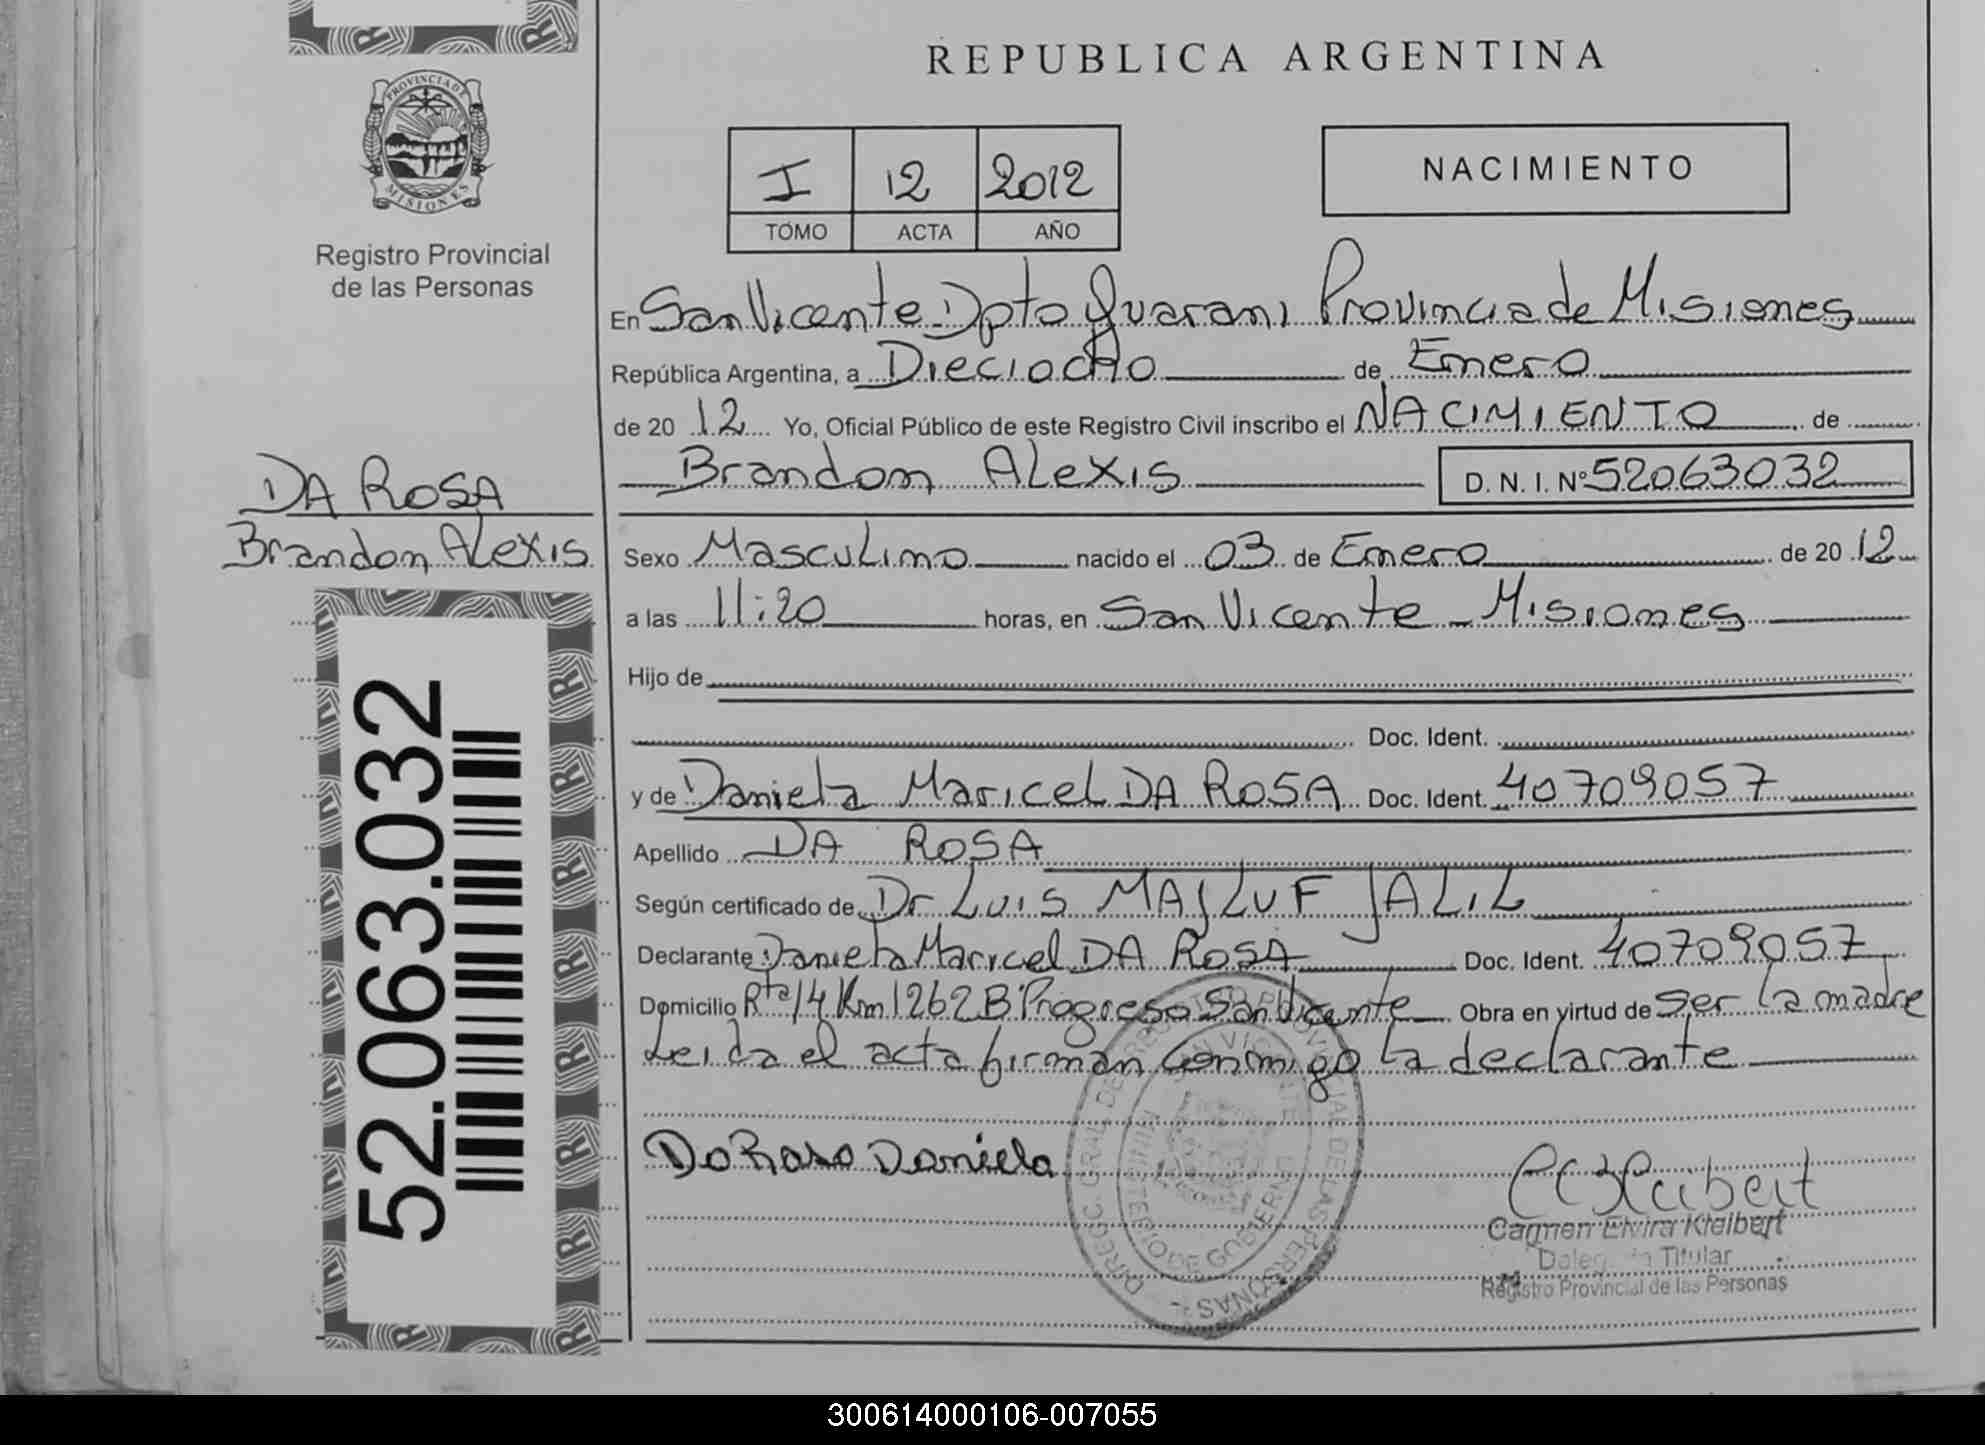 REPUBLICA ARGENTINA
PROVINCIA DE
MISIONES
Registro Provincial
de las Personas
I 12 2012
TOMO ACTA AÑO
NACIMIENTO
En San Vicente Dpto Guarani Provincia de Misiones
República Argentina, a Dieciocho de Enero
de 20 12 Yo, Oficial Público de este Registro Civil inscribo el NACIMIENTO de
Brandon Alexis D. N. I. Nº 52063032
DA ROSA
Brandon Alexis
Sexo Masculino nacido el 03 de Enero de 20 12
a las 11:20 horas, en San Vicente - Misiones
Hijo de
Doc. Ident.
y de Daniela Maricel DA ROSA Doc. Ident. 40709057
Apellido DA ROSA
Según certificado de Dr Luis MAJLUF JALIL
Declarante Daniela Maricel DA ROSA Doc. Ident. 40709057
Domicilio Rta 14 Km 1262 B° Progreso San Vicente Obra en virtud de Ser la madre
Leida el acta firman conmigo la declarante
52.063.032
Da Rosa Daniela
C E Kleibert
Carmen Elvira Kleibert
Delegada Titular
Registro Provincial de las Personas
300614000106-007055